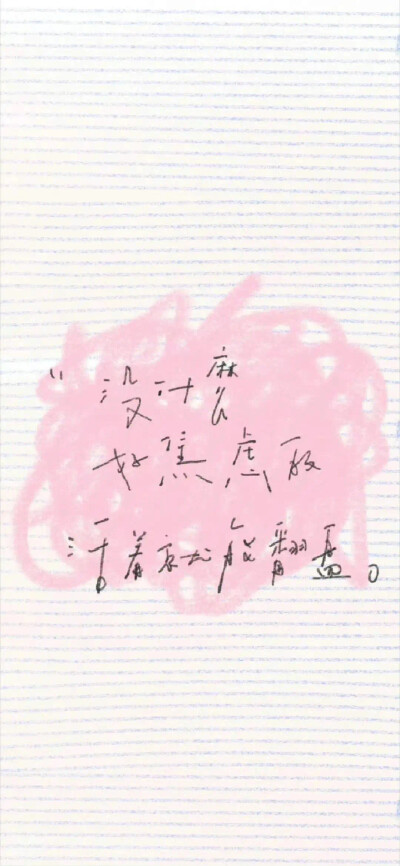 “没什麼
好焦虑的
活着就能翻盘。